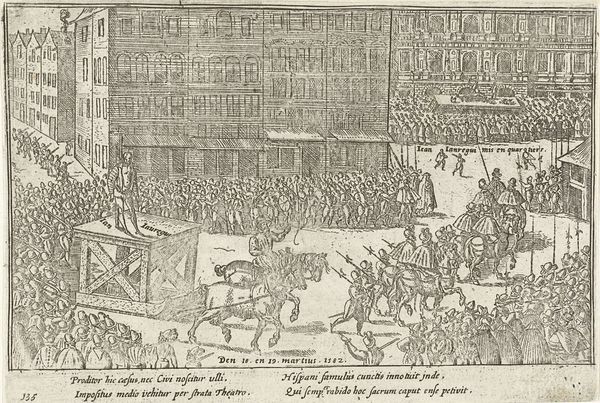 Iean Iauregui mis en quartiere.
Ian Iauregui
Den 18. en 19. martius. 1582.
Proditor hic cæsus, nec Civi noscitur ulli.
Impositus medio vehitur per strata Theatro.
Hispani famulus cunctis innotuit inde.
Qui semp. rabido hoc sacrum caput ense petivit.
136